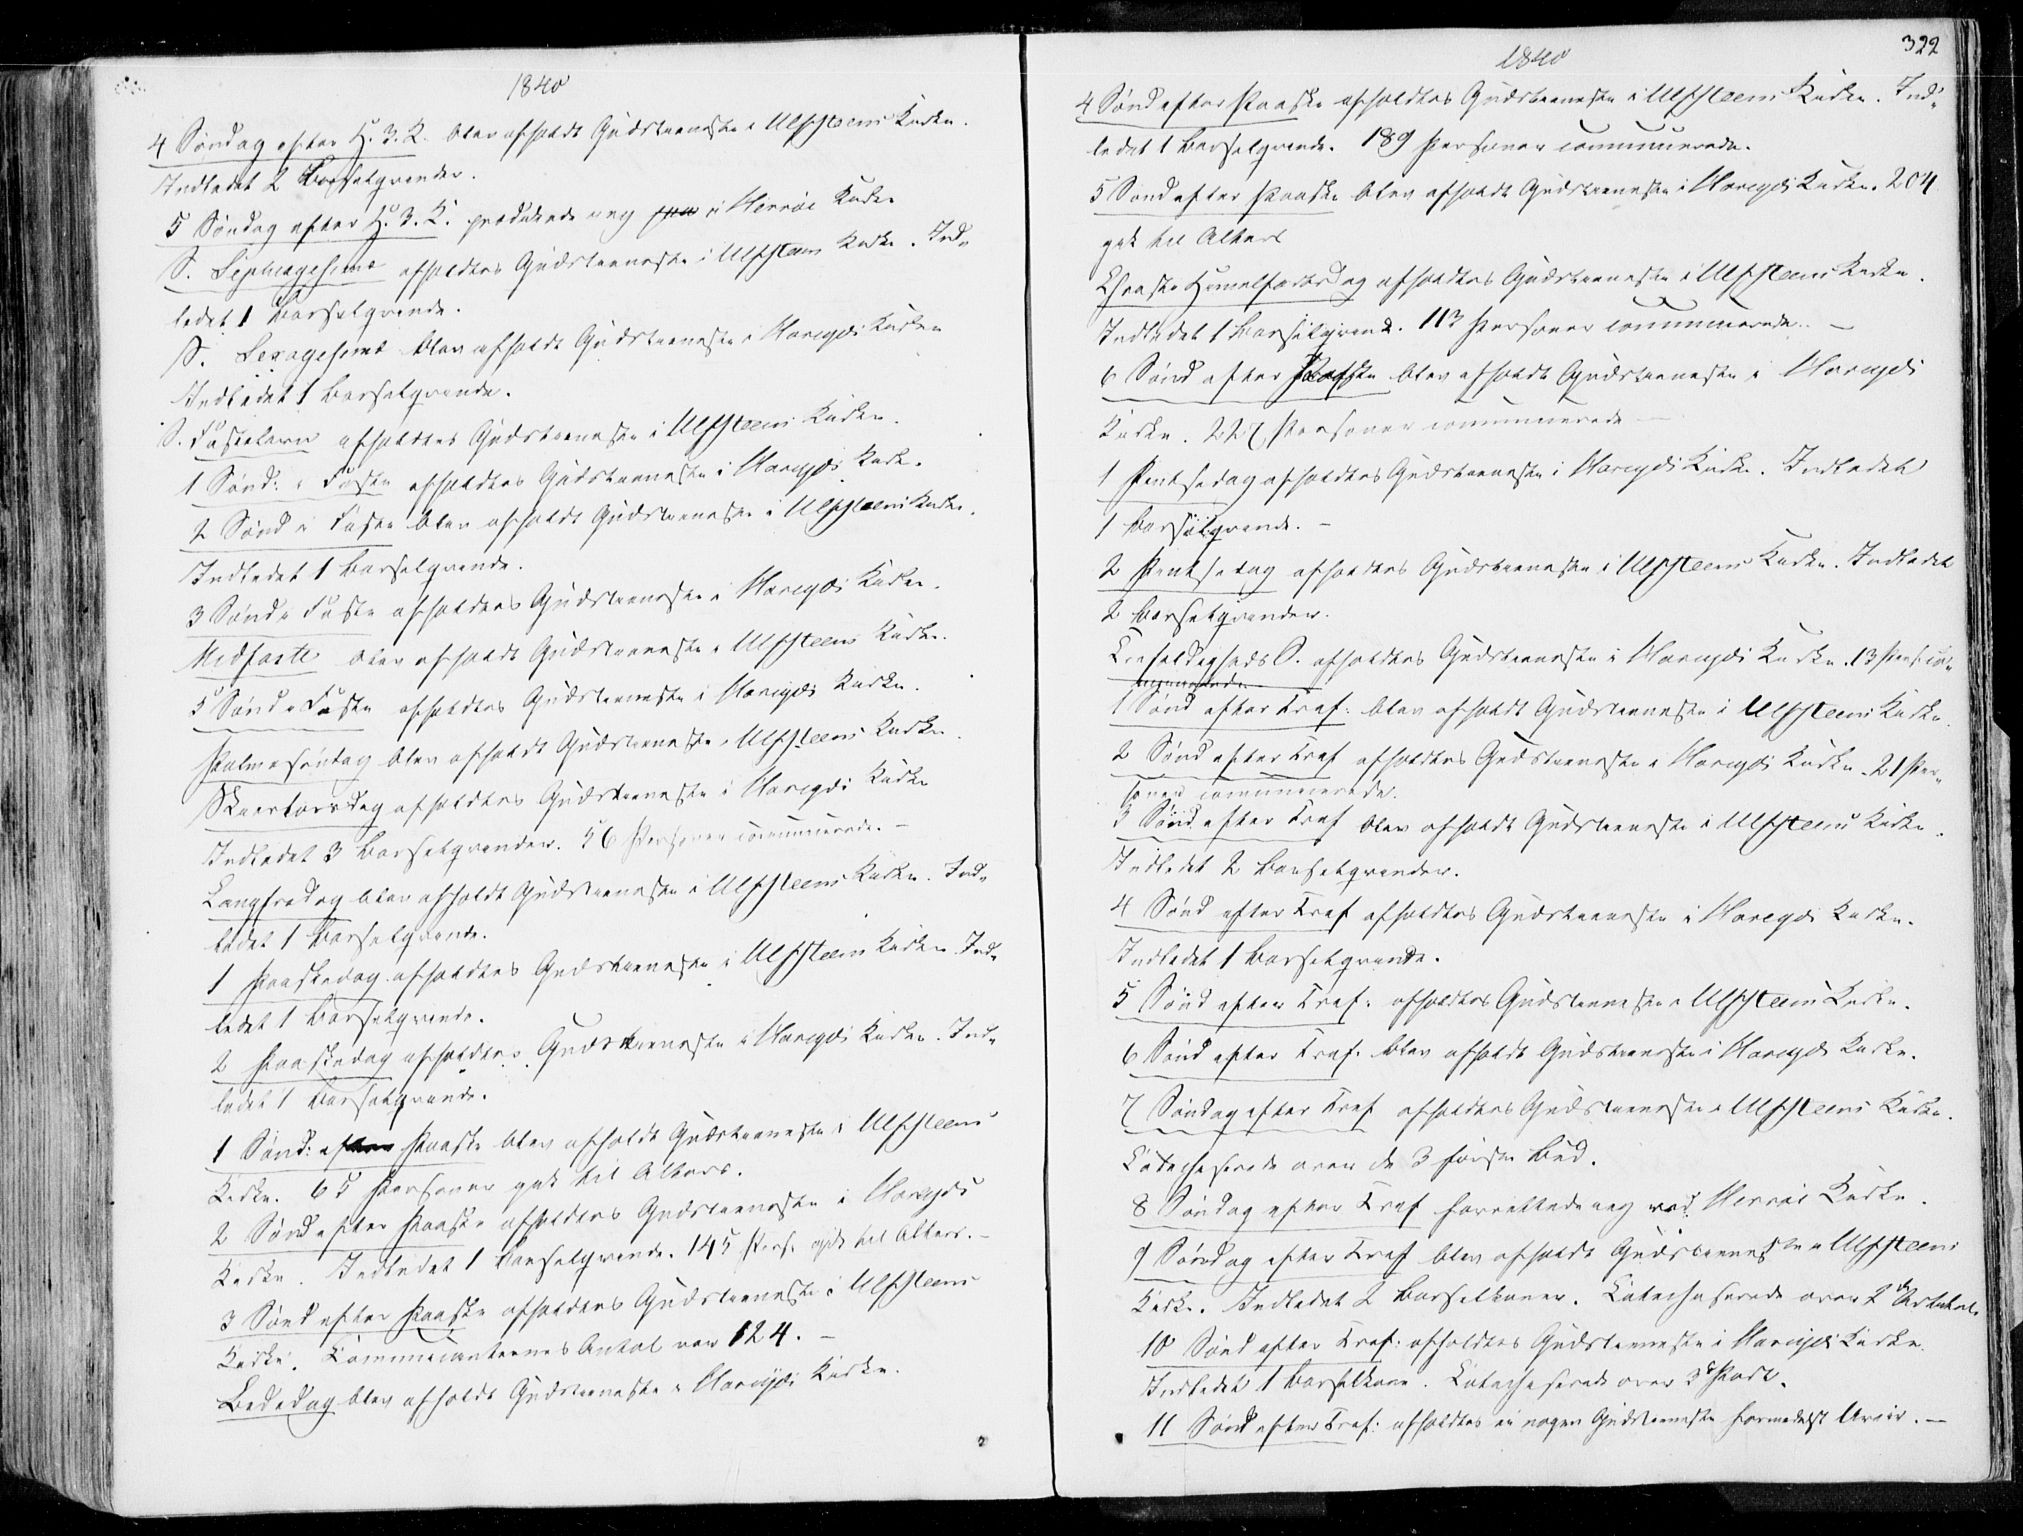 1840
4 Søndag efter H. 3. K. blev afholdt Gudstieneste i Ulfsteens Kirke.
Indledet 2 Barselqvinder.
5 Søndag efter H. 3. K. prædikede jeg i Herröe Kirke
S. Septuagesima afholdtes Gudstieneste i Ulfsteens Kirke. Ind-
ledet 1 Barselqvinde.
S. Sexagesima blev afholdt Gudstieneste i Hareids Kirke
Indledet 1 Barselqvinde.
S. Fastelavn afholdtes Gudstieneste i Ulfsteens Kirke.
1 Sönd: i Faste afholdtes Gudstieneste i Hareids Kirke.
2 Sönd i Faste blev afholdt Gudstieneste i Ulfsteens Kirke.
Indledet 1 Barselqvinde.
3 Sönd i Faste afholdtes Gudstieneste i Hareids Kirke.
Midfaste blev afholdt Gudstieneste i Ulfsteens Kirke.
5 Sönd i Faste afholdtes Gudstieneste i Hareids Kirke.
Palmesöndag blev afholdt Gudstieneste i Ulfsteens Kirke.
Skiertorsdag afholdtes Gudstieneste i Hareids Kirke
Indledet 3 Barselqvinder. 56 Personer communicerede. –
Langfredag blev afholdt Gudstieneste i Ulfsteens Kirke. Ind-
ledet 1 Barselqvinde.
1 Paaskedag afholdtes Gudstieneste i Ulfsteens Kirke. Ind-
ledet 1 Barselqvinde.
2 Paaskedag afholdtes Gudstieneste i Hareids Kirke. Ind-
ledet 1 Barselqvinde.
1 Sönd: efter Paaske blev afholdt Gudstieneste i Ulfsteens
Kirke. 65 Personer gik til Alters.
2 Sönd efter Paaske afholdtes Gudstieneste i Hareids
Kirke. Indledet 1 Barselqvinde. 145 Pers. gik til Alters. –
3 Sönd efter Paaske afholdtes Gudstieneste i Ulfsteens
Kirke. Communicanternes Antal var 124. –
Bededag blev afholdt Gudstieneste i Hareids Kirke.
1840
322
4 Sönd efter Paaske afholdtes Gudstieneste i Ulfsteens Kirke. Ind-
ledet 1 Barselqvinde. 189 Personer communicerede.
5 Sönd efter Paaske blev afholdt Gudstieneste i Hareids Kirke. 204
gik til Alters
Christi Himmelfartsdag afholdtes Gudstieneste i Ulfsteens Kirke.
Indledet 1 Barselqvinde. 113 Personer communicerede. –
6 Sönd efter Paaske blev afholdt Gudstieneste i Hareids
Kirke. 227 Personer communicerede –
1 Pintsedag afholdtes Gudstieneste i Hareids Kirke. Indledet
1 Barselqvinde. –
2 Pintsedag afholdtes Gudstieneste i Ulfsteens Kirke. Indledet
2 Barselqvinder.
Trefoldigheds S. afholdtes Gudstieneste i Hareids Kirke. 13 Pers. com-
municerede
1 Sönd efter Tref: blev afholdt Gudstieneste i Ulfsteens Kirke.
2 Sönd efter Tref afholdtes Gudstieneste i Hareids Kirke. 21 Per-
soner communicerede.
3 Sönd efter Tref blev afholdt Gudstieneste i Ulfsteens Kirke.
Indledet 2 Barselqvinder.
4 Sönd efter Tref afholdtes Gudstieneste i Hareids Kirke.
Indledet 1 Barselqvinde.
5 Sönd efter Tref: afholdtes Gudstieneste i Ulfsteens Kirke.
6 Sönd efter Tref. blev afholdt Gudstieneste i Hareids Kirke.
7 Söndag efter Tref afholdtes Gudstieneste i Ulfsteens Kirke.
Catechiserede over de 3 förste Bud.
8 Söndag efter Tref forrettede jeg ved Herröe Kirke.
9 Söndag efter Tref blev afholdt Gudstieneste i Ulfsteens
Kirke. Indledet 2 Barselkoner. Catechiserede over 2den Artikel.
10 Sönd efter Tref: afholdtes Gudstieneste i Hareids Kirke.
Indledet 1 Barselkone. Catechiserede over 3die Part.
11 Sönd efter Tref: afholdtes ei nogen Gudstieneste formedelst Uveir. –